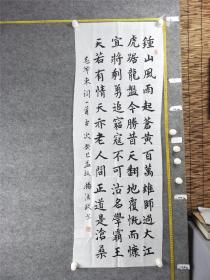 鍾山風雨起蒼黄百萬雄師過大江
虎踞龍盤今勝昔天翻地覆慨而慷
宜將剩勇追窮寇不可沽名學霸王
天若有情天亦老人間正道是滄桑
毛澤東詞一首